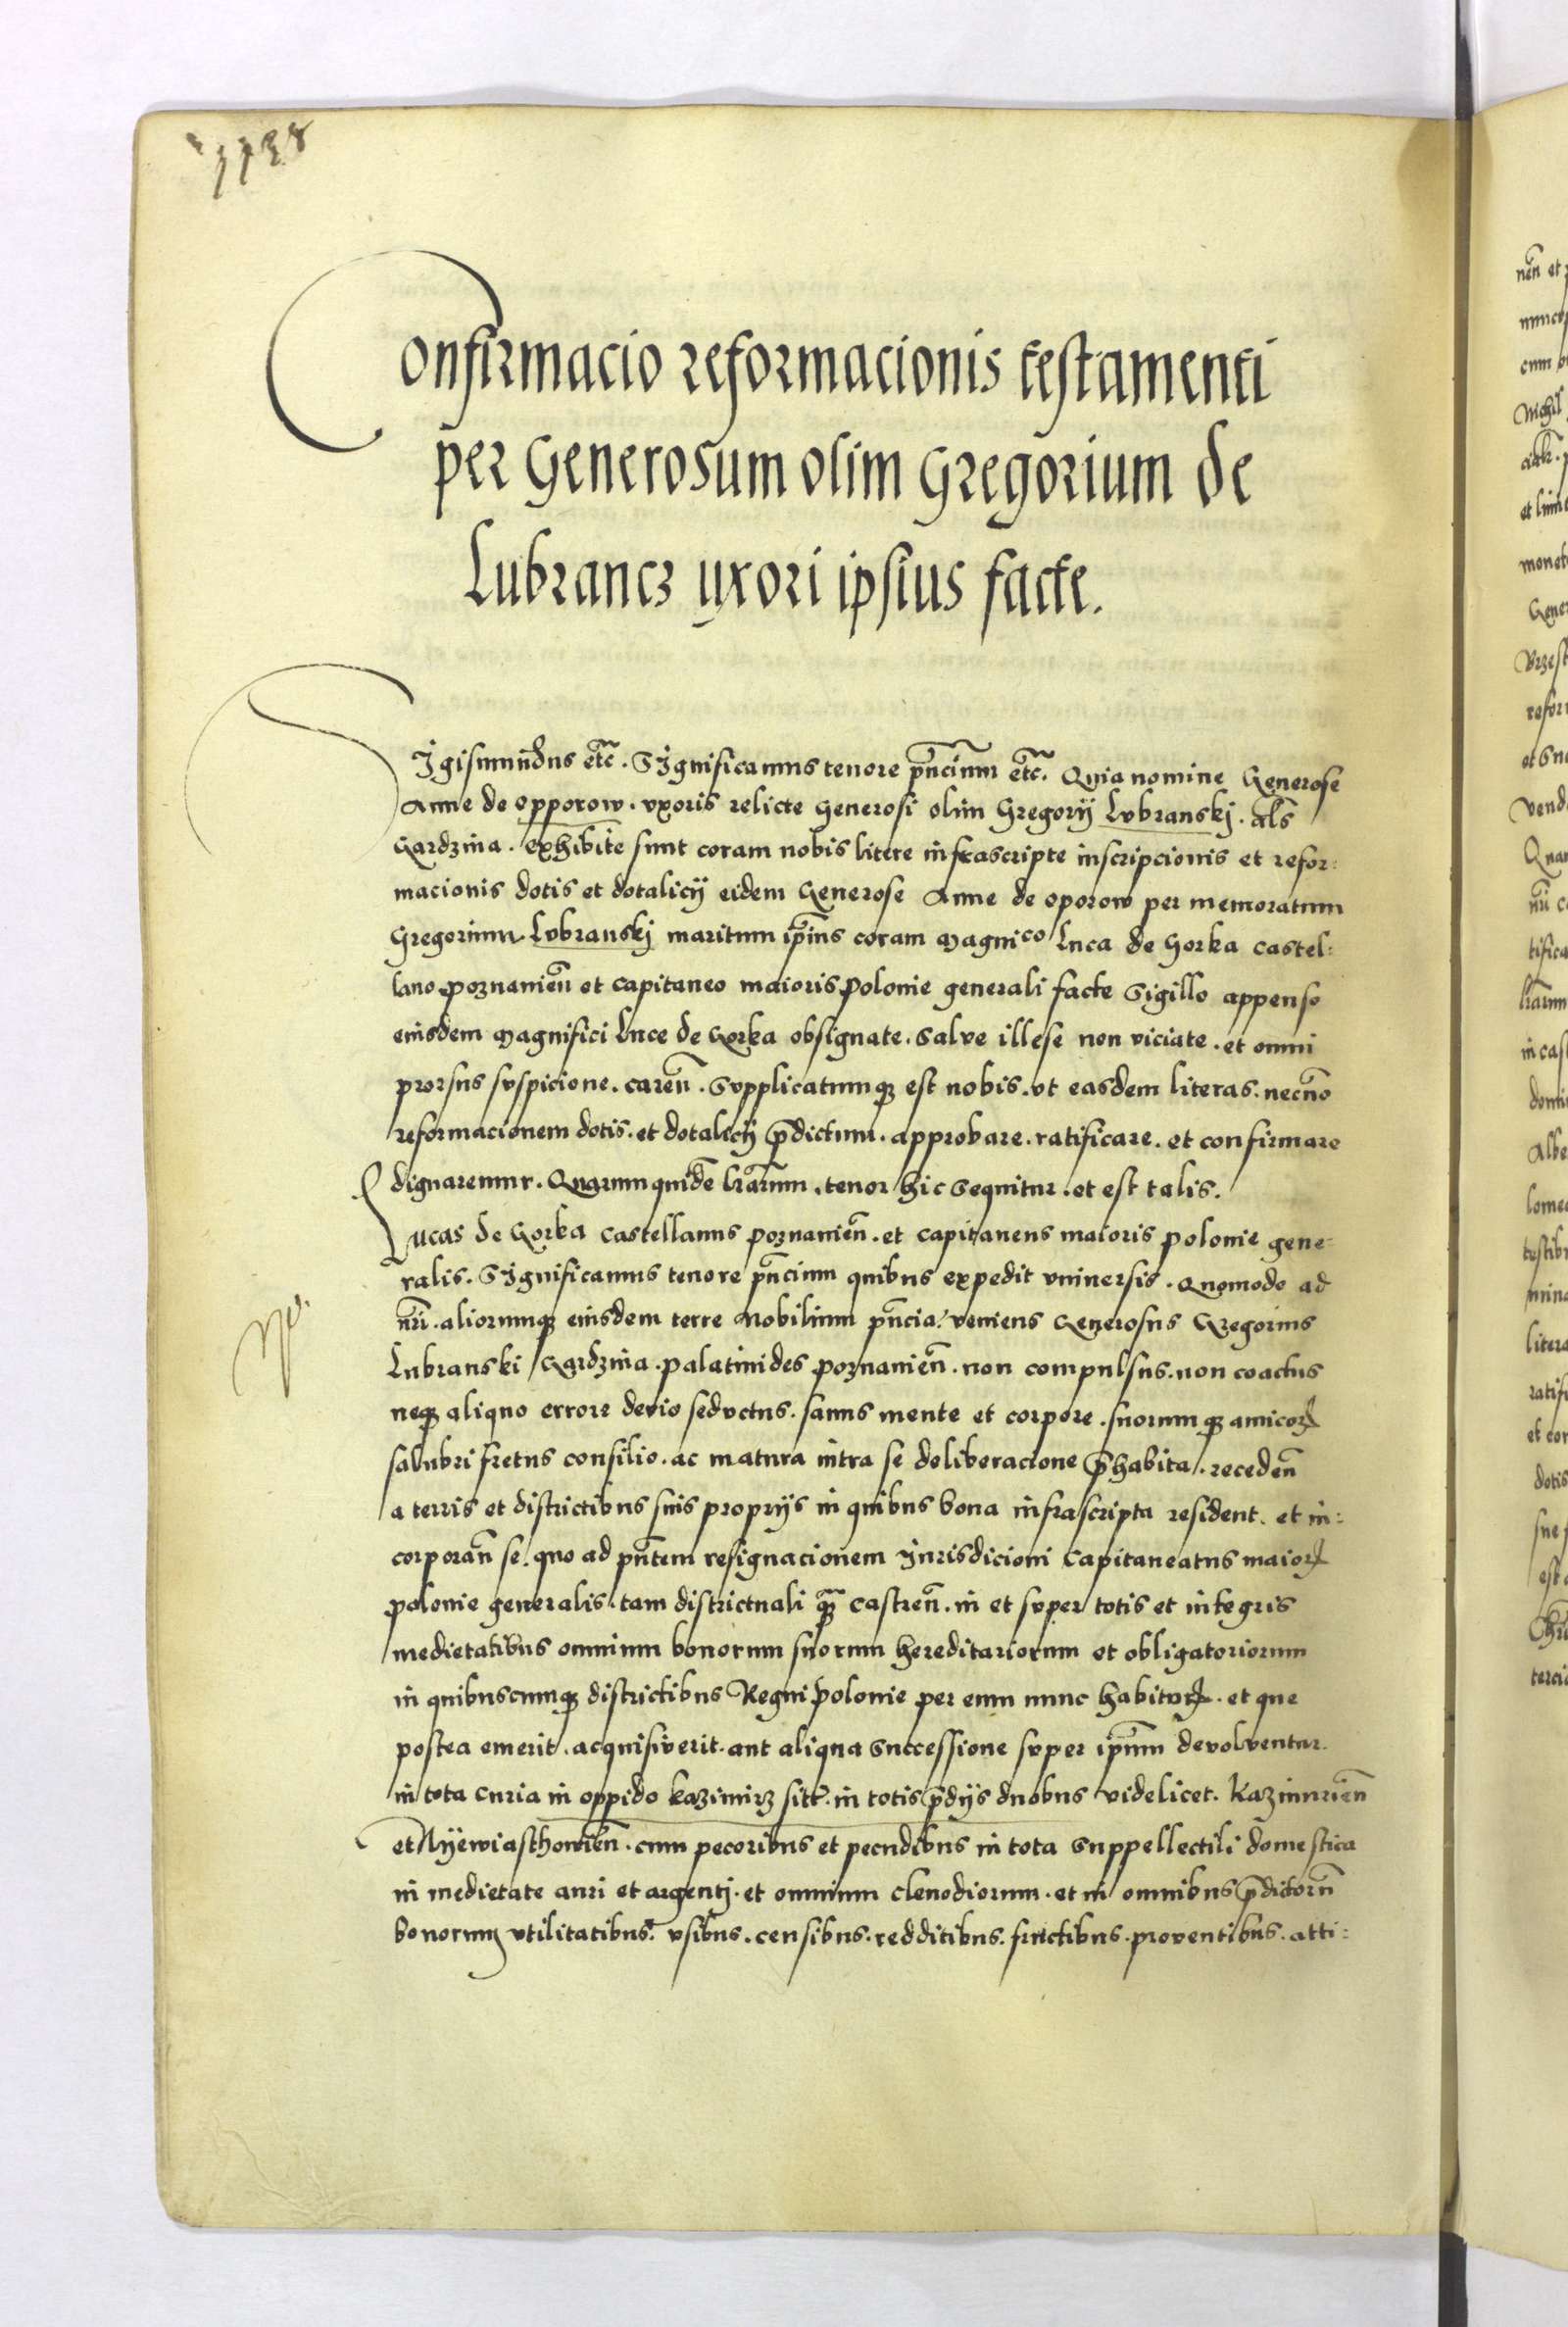 1138
Confirmacio reformacionis testamenti
per Generosum olim Gregorium de
Lubrancz uxori ipsius facte.
Sigismundus etc̃. Significamus tenore p̃ncium etc̃. Quia nomine Generose
Anne de opporow. vxoris relicte Generosi olim Gregorij Lvbranskj. als̃
Gardzina. exhibite sunt coram nobis litere infrascripte inscripcionis et refor:
macionis dotis et dotalicij eidem Generose Anne de oporow per memoratum
Gregorium Lvbranskj maritum ip̃ius coram Magnico Luca de Gorka castel:
lano poznanien̄ et capitaneo maioris polonie generali facte sigillo appenso
eiusdem Magnifici Luce de Gorka obsignate. salve illese non viciate. et omni
prorsus svspicione. caren̄. Svpplicatumqȝ est nobis. vt easdem literas. necno̅
reformacionem dotis. et dotalicij p̄dictum. approbare. ratificare. et confirmare
dignaremur. Quarumquide̅ lr̃arum. tenor hic sequitur. et est talis.
Lucas de Gorka castellanus poznanien̄. et capitaneus maioris polonie gene-
ralis. Significamus tenore p̃ncium quibus expedit vniuersis. Quomodo ad
nr̃i. aliorumqȝ eiusdem terre Nobilium p̃ncia. veniens Generosus Gregorius
Lubranski Gardzina. palatinides poznanien̄. non compulsus. non coactus
neqȝ aliquo errore devio sedvctus. sanus mente et corpore. suorumqȝ amicoꝝ
salubri fretus consilio. ac matura intra se deliberacione p̄habita. receden̄
a terris et districtibus suis proprijs in quibus bona infrascripta resident. et in:
corporan̄ se. quo ad pn̄tem resignacionem Jurisdicioni Capitaneatus maioꝝ
polonie generalis. tam districtuali qȝ̃ castren̄. in et svper totis et integris
medietatibus omnium bonorum suorum hereditariorum et obligatoriorum
in quibuscumqȝ districtibus Regni polonie per eum nunc habitoꝝ. et que
postea emerit. acquisiverit. aut aliqua successione svper ip̃um devolventur.
in tota curia in oppido kazimirz sitt̃. in totis p̄dijs duobus videlicet. Kazimirien̄
et Nyewiasthowien̄. cum pecoribus et pecudibus in tota suppellectili domestica
in medietate auri et argentj. et omnium clenodiorum. et in omnibus p̄dictorū
bonorum vtilitatibus. vsibus. censibus. redditibus. fructibus. proventibus. atti: